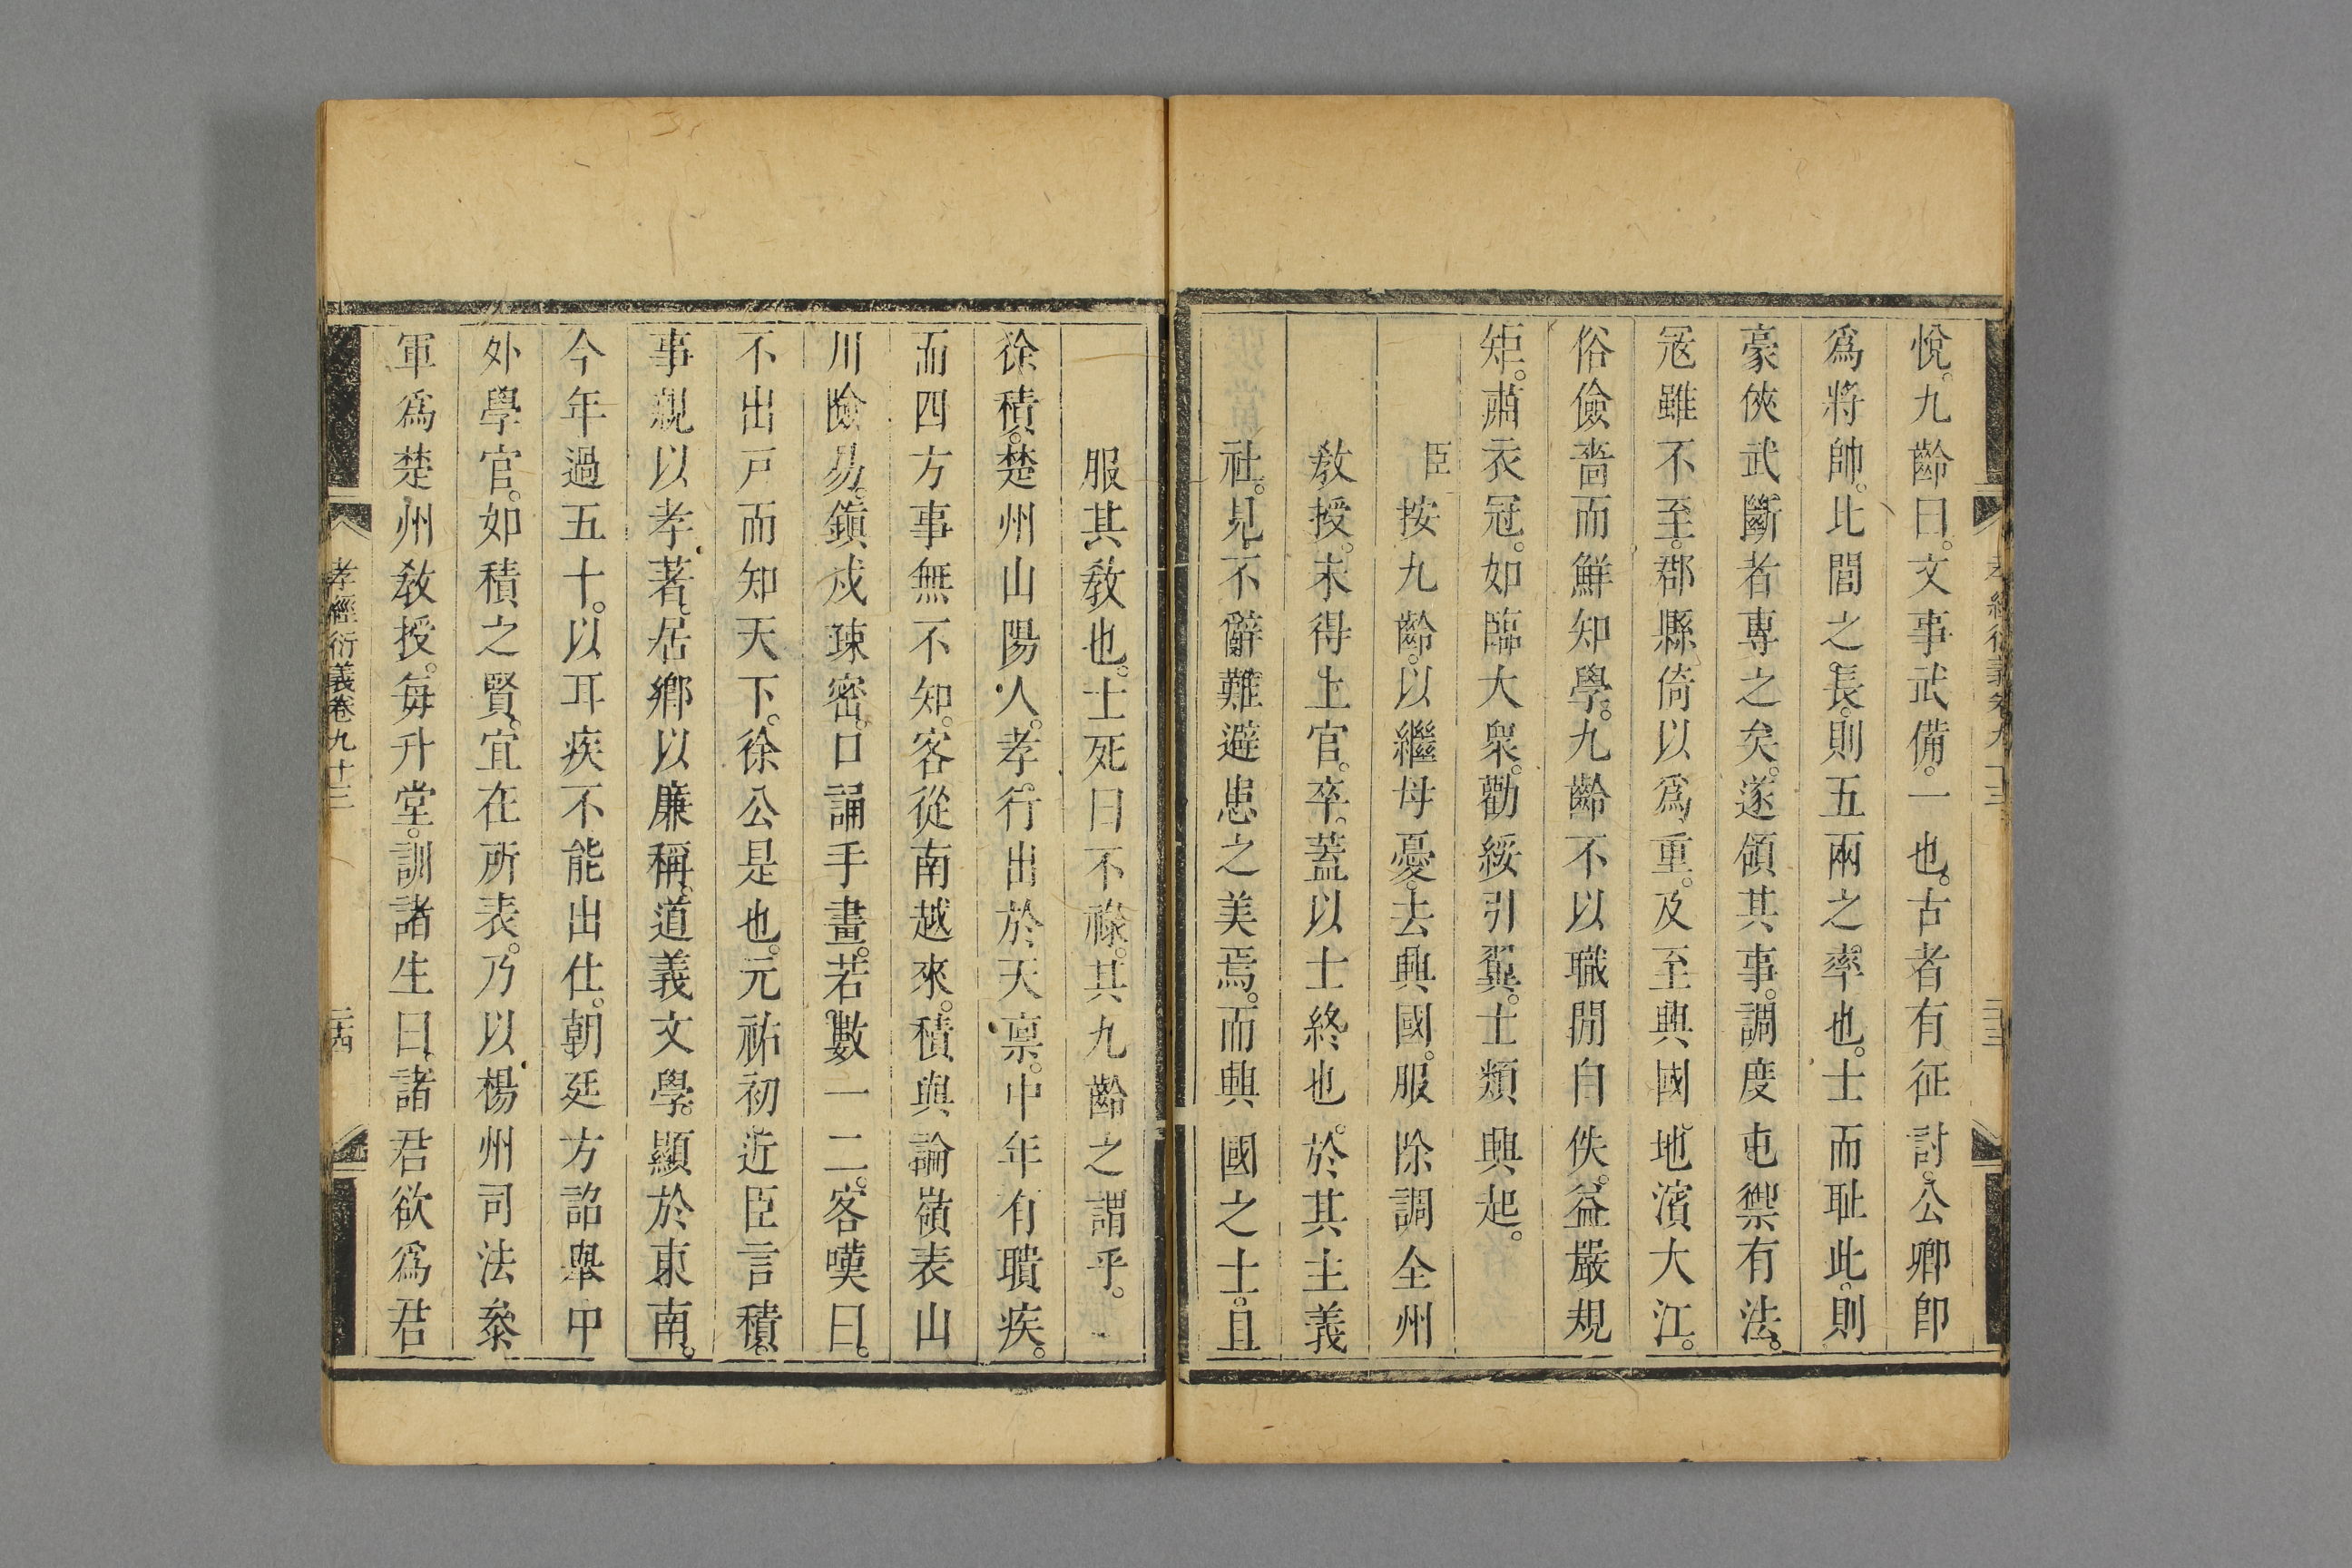 悅。九齡曰。文事武備。一也。古者有征討。公卿卽
爲將帥。比閭之長。則五兩之率也。士而耻此。則
豪俠武斷者專之矣。遂領其事。調度屯禦有法。
冦雖不至。郡縣倚以爲重。及至興國地濱大江。
俗儉嗇而鮮知學。九齡不以職閒自佚。益嚴規
矩。肅衣冠。如臨大衆。勸綏引翼。士類興起。
臣按九齡。以繼母憂。去興國。服除調全州
敎授。未得上官。卒。蓋以士終也。於其主義
社。見不辭難避患之美焉。而興國之士。且
孝經衍義卷九十三
二十三
服其敎也。士死曰不祿。其九齡之謂乎。
徐積。楚州山陽人。孝行出於天稟。中年有聵疾。
而四方事無不知。客從南越來。積與論嶺表山
川險易。鎭戍疎密。口誦手畫。若數一二。客嘆曰。
不出戸而知天下。徐公是也。元祐初近臣言積。
事親以孝著。居鄉以廉稱。道義文學。顯於東南。
今年過五十。以耳疾不能出仕。朝廷方詔舉中
外學官。如積之賢。宜在所表。乃以楊州司法叅
軍爲楚州敎授。每升堂。訓諸生曰。諸君欲爲君
孝經衍義卷九十三
二十四